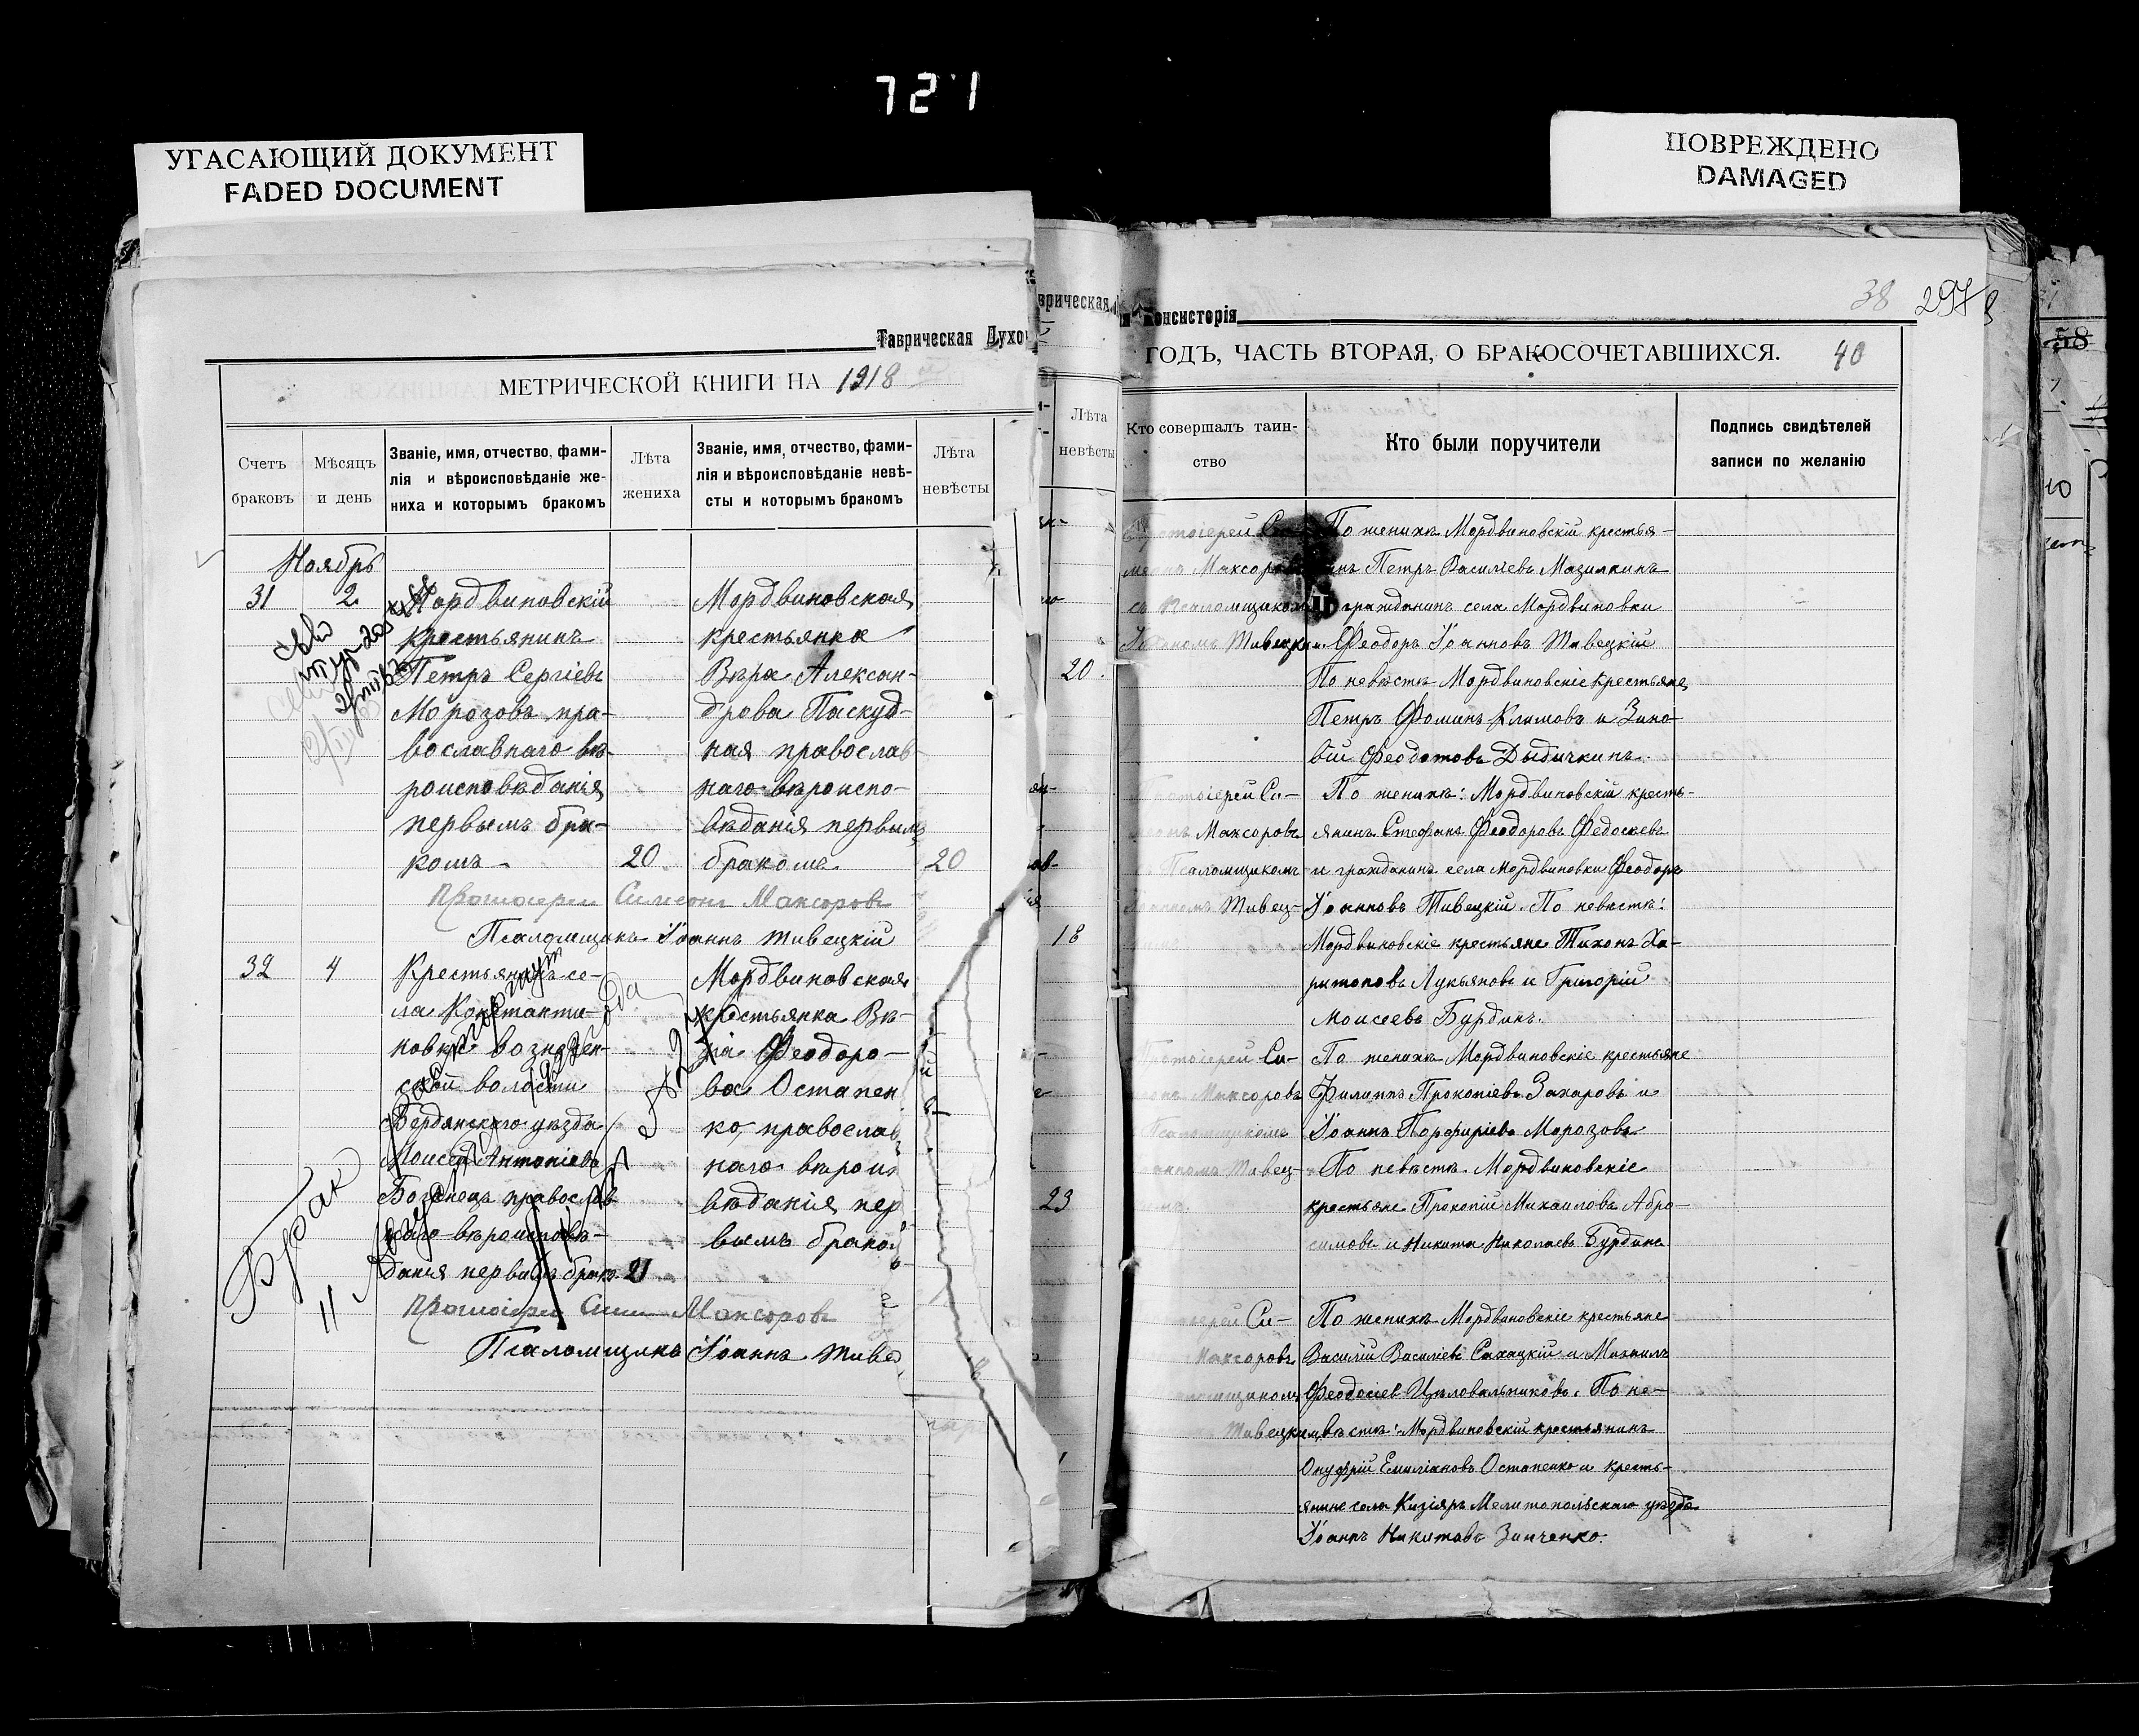 721
УГАСАЮЩИЙ ДОКУМЕНТ
FADED DOCUMENT
ПОВРЕЖДЕНО
DAMAGED
Таврическая Духо
МЕТРИЧЕСКОЙ КНИГИ НА 1918
Счетъ браковъ
Мѣсяцъ и день
Званіе, имя, отчество, фами-
лія и вѣроисповѣданіе же-
ниха и которымъ бракомъ
Лѣта жениха
Званіе, имя, отчество, фами-
лія и вѣроисповѣданіе невѣ-
сты и которымъ бракомъ
Лѣта невѣсты
Ноябрь
31 2
Мордвиновскій
крестьянинъ
Петръ Сергіевъ
Морозовъ пра-
вославнаго вѣ-
роисповѣданія
первымъ бра-
комъ 20
Мордвиновская
крестьянка
Вѣра Алексан-
дрова Паскуд-
ная православ
наго вѣроиспо-
вѣданія первымъ
бракомъ 20
Протоіерей Симеонъ Максоровъ
Псаломщикъ Іоаннъ Тивецкій
32 4
Крестьянинъ се-
ла Константи-
новки Вознесен-
ской волости
Бердянскаго уѣзда
Моисей Антоніевъ
Боганецъ православ
наго вѣроисповѣ-
данія первымъ брак. 21
Мордвиновская
крестьянка Вѣ-
ра Феодоро-
ва Остапен
ко, православ
наго вѣроис
вѣданія пер
вымъ браком
Протоіерей Симеонъ Максоровъ
Псаломщикъ Іоаннъ Тивец
Бракъ
расторгнут
11
врическая
Лѣта
невѣсты
20
18
23
Консисторія
38 297
ГОДЪ, ЧАСТЬ ВТОРАЯ, О БРАКОСОЧЕТАВШИХСЯ. 40
Кто совершалъ таин-
ство
Кто были поручители
Подпись свидѣтелей
записи по желанію
Протоіерей Си-
меонъ Максоровъ
съ Псаломщикомъ
Іоанномъ Тивецким
По женихѣ Мордвиновскій крестья-
нинъ Петръ Василіевъ Мазилкинъ
и гражданинъ села Мордвиновки
Феодоръ Іоанновъ Тивецкій
По невѣстѣ Мордвиновскіе крестьяне
Петръ Фоминъ Климовъ и Зино-
вій Феодотовъ Дыдычкинъ.
Протоіерей Си-
меонъ Максоровъ
Псаломщикомъ
Іоанномъ Тивец-
По женихѣ: Мордвиновскій кресть-
янинъ Стефанъ Феодоровъ Федосеевъ
и гражданинъ села Мордвиновки Феодоръ
Іоанновъ Тивецкій. По невѣстѣ:
Мордвиновскіе крестьяне Тихонъ Ха-
ритоновъ Лукьяновъ и Григорій
Моисеевъ Бурдинъ.
Протоіерей Си-
меонъ Максоровъ
Псаломщикомъ
Іоанномъ Тивец-
кимъ
По женихѣ Мордвиновскіе крестьяне
Филиппъ Прокопіевъ Захаровъ и
Іоаннъ Порфиріевъ Морозовъ
По невѣстѣ Мордвиновскіе
крестьяне Прокопій Михаиловъ Абро-
симовъ и Никита Николаевъ Бурдинъ
Си-
Максоровъ
Псаломщикомъ
Тивецкимъ
По женихѣ Мордвиновскіе крестьяне
Василій Василіевъ Сахацкій и Михаилъ
Феодосіев Цѣловальниковъ. По не-
вѣстѣ: Мордвиновскій крестьянинъ
Онуфрій Емиліановъ Остапенко и кресть-
янинъ села Кизіяръ Мелитопольскаго уѣзда
Іоаннъ Никитовъ Зинченко.
58